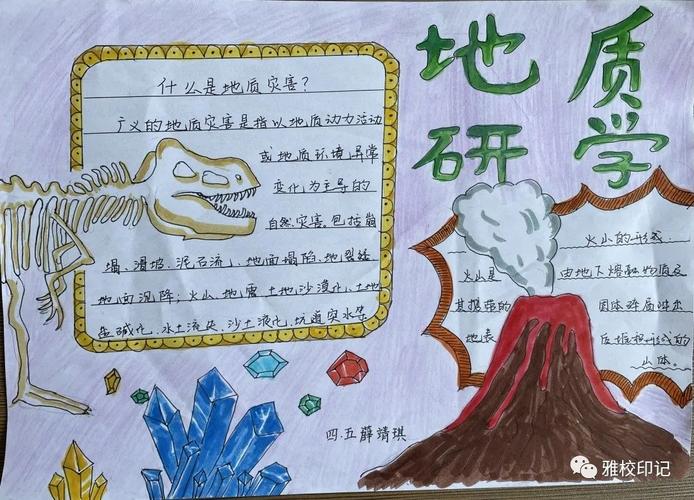 地质
研学
什么是地质灾害?
广义的地质灾害是指以地质动力活动
或地质环境异常
变化为主导的
自然灾害。包括崩
塌、滑坡、泥石流、地面塌陷、地裂缝
地面沉降;火山、地震、土地沙漠化、土地
盐碱化、水土流失、沙土液化、坑道突水等
火山的形成:
火山是 由地下熔融物质及
其携带的 固体碎屑冲出
地表 后堆积形成的
山体。
四.五薛靖琪
雅校印记